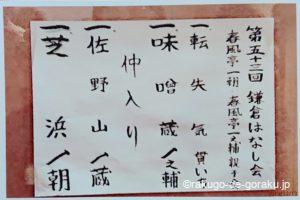 第五十三回 鎌倉はなし会
春風亭一朝 春風亭一之輔 親子
一 転失気 貫いち
一 味噌蔵 一之輔
仲入り
一 佐野山 一蔵
一 芝浜 一朝
©rakugo-de-goraku.jp